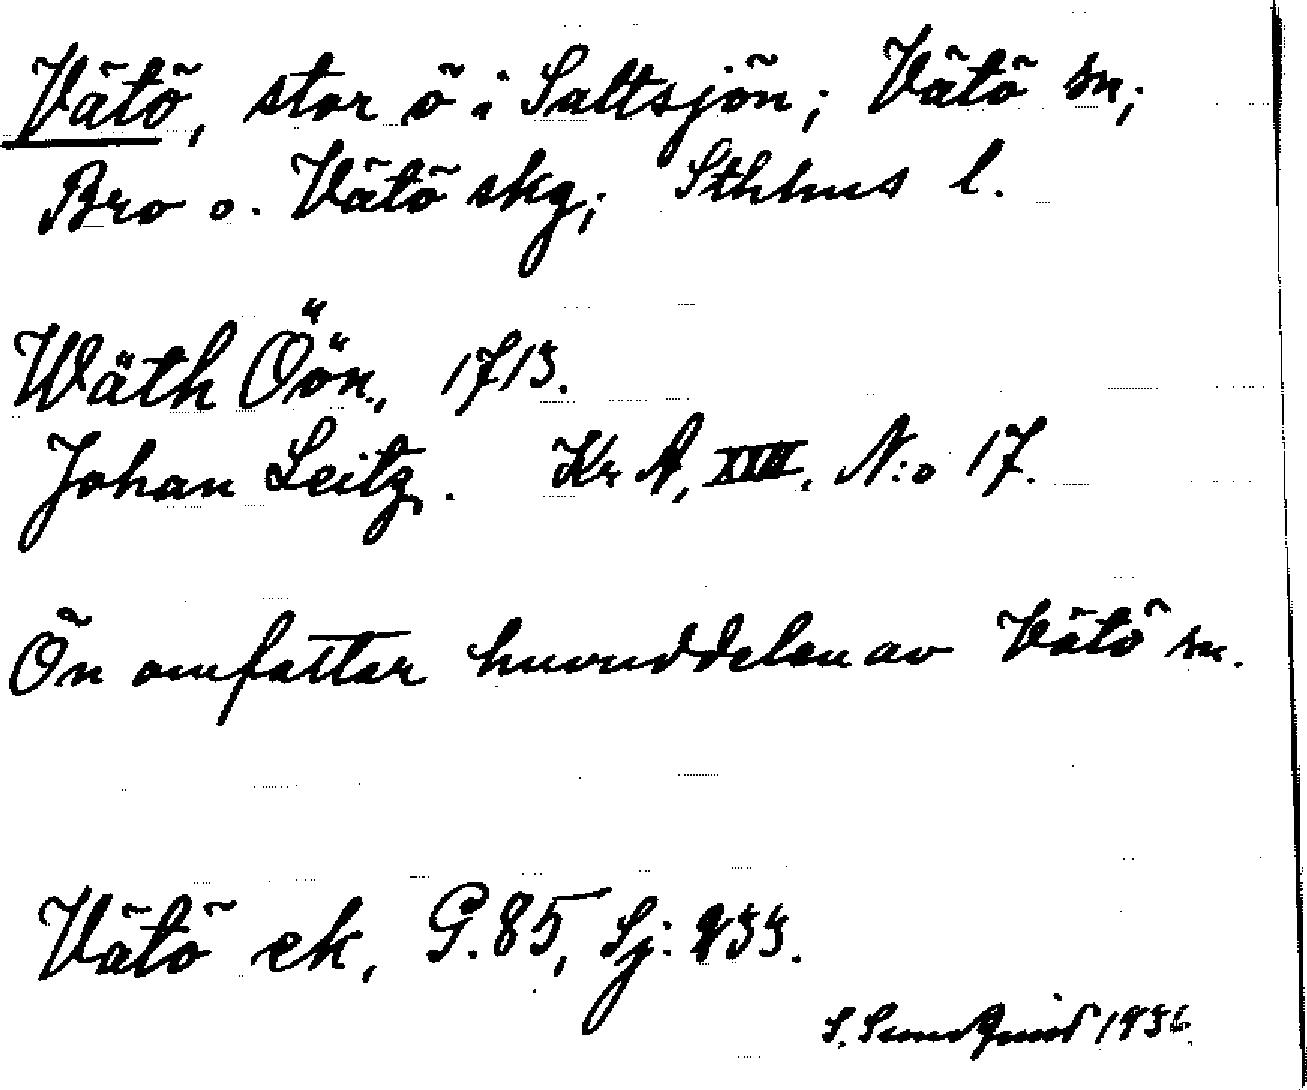 Vätö, stor ö i Saltsjön; Vätö sn;
Bro o. Vätö skg; Sthlms l.
Wäth Öön, 1713.
Johan Leitz. Kr A, XVII, N:o 17.
Ön omfattar huvuddelen av Vätö sn.
Vätö ek, G.85, Sj: 933.
S. Sundquist 1936